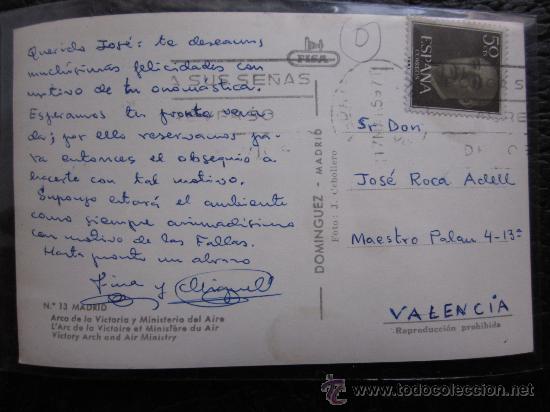 Querido José: te deseamos
muchísimas felicidades con
motivo de tu onomástica.
Esperamos tu pronta veni-
da; por ello reservamos pa-
ra entonces el obsequio a
hacerte con tal motivo.
Supongo estará el ambiente
como siempre animadísimo
con motivo de las Fallas.
Hasta pronto un abrazo
Fina y Miguel
Nº 13 MADRID
Arco de la Victoria y Ministerio del Aire
L'Arc de la Victoire et Ministère du Air
Victory Arch and Air Ministry
FISA
A SUS SEÑAS
DOMINGUEZ - MADRID
Foto: J. Cebollero
D
50
CTS
ESPAÑA
CORREOS
Sr Don,
José Roca Adell
Maestro Palau 4-13ª
VALENCIA
Reproducción prohibida
todocoleccion.net